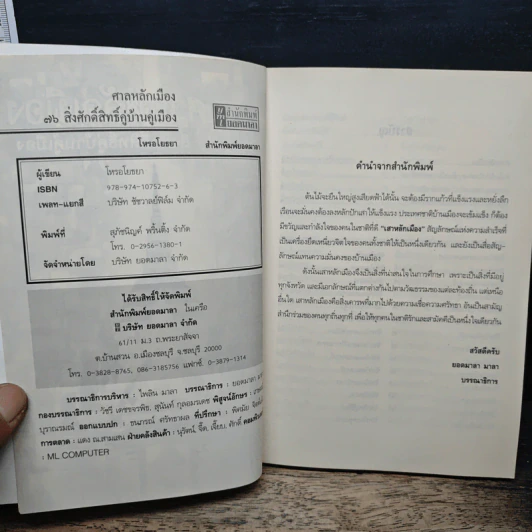 ศาลหลักเมือง
๗๖ สิ่งศักดิ์สิทธิ์คู่บ้านคู่เมือง
สำนักพิมพ์
ยอดมาลา
โหรอโยธยา
สำนักพิมพ์ยอดมาลา
ผู้เขียน โหรอโยธยา
ISBN 978-974-10752-6-3
เพลท-แยกสี บริษัท ชัชวาลย์ฟิล์ม จำกัด
พิมพ์ที่ สุภัชนิญค์ พริ้นติ้ง จำกัด
โทร. 0-2956-1380-1
จัดจำหน่ายโดย บริษัท ยอดมาลา จำกัด
ได้รับสิทธิ์ให้จัดพิมพ์
สำนักพิมพ์ยอดมาลา ในเครือ
บริษัท ยอดมาลา จำกัด
61/11 ม.3 ถ.พระยาสัจจา
ต.บ้านสวน อ.เมืองชลบุรี จ.ชลบุรี 20000
โทร. 0-3828-8765, 086-3185756 แฟกซ์. 0-3879-1314
บรรณาธิการบริหาร : ไพลิน มาลา บรรณาธิการ : ยอดมาลา
กองบรรณาธิการ : วัชรี เดชะจรพิช, สุนันท์ กุลอมรเดช พิสูจน์อักษร :
บุราณรมณ์ ออกแบบปก : ธนภรณ์ ศรัทธาผล ที่ปรึกษา : พิศมัย
การตลาด : แดง ณ.สามเสน ฝ่ายคลังสินค้า : นุรัตน์, จี๊ด, เจี๊ยบ, ศักดิ์
: ML COMPUTER
คำนำจากสำนักพิมพ์
ต้นไม้จะยืนใหญ่สูงเสียดฟ้าได้นั้น จะต้องมีรากแก้วที่แข็งแรงและหยั่งลึก
เรือนจะมั่นคงต้องลงหลักปักเสาให้แข็งแรง ประเทศชาติบ้านเมืองจะเข้มแข็ง ก็ต้อง
มีขวัญและกำลังใจของคนในชาติที่ดี "เสาหลักเมือง" สัญลักษณ์แห่งความสำเร็จที่
เป็นเครื่องยึดเหนี่ยวจิตใจของคนทั้งชาติให้เป็นหนึ่งเดียวกัน และยังเป็นสื่อสัญ-
ลักษณ์แทนความมั่นคงของบ้านเมือง
ดังนั้นเสาหลักเมืองจึงเป็นสิ่งที่น่าสนใจในการศึกษา เพราะเป็นสิ่งที่มีอยู่
ทุกจังหวัด และมีเอกลักษณ์ที่แตกต่างกันไปตามวัฒนธรรมของแต่ละท้องถิ่น แต่เหนือ
อื่นใด เสาหลักเมืองคือสิ่งเคารพที่มากไปด้วยความเชื่อความศรัทธา อันเป็นสามัญ
สำนึกร่วมของคนทุกถิ่นทุกที่ เพื่อให้ทุกคนในชาติรักและสามัคคีเป็นหนึ่งใจเดียวกัน
สวัสดีครับ
ยอดมาลา มาลา
บรรณาธิการ